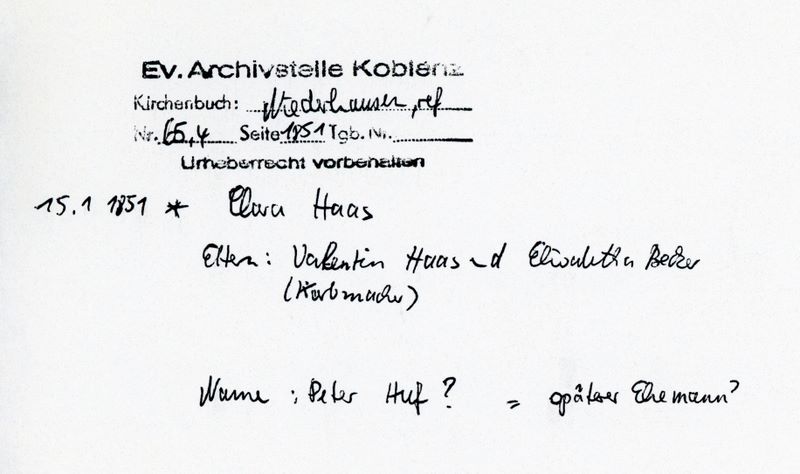 Ev. Archivstelle Koblenz
Kirchenbuch: Niederhausen, ref
Nr. 65,4 Seite 1851 Tgb. Nr.
Urheberrecht vorbehalten
15.1 1851 * Clara Haas
Eltern: Valentin Haas und Elisabetha Becker
(Korbmacher)
Name : Peter Huf? = späterer Ehemann?